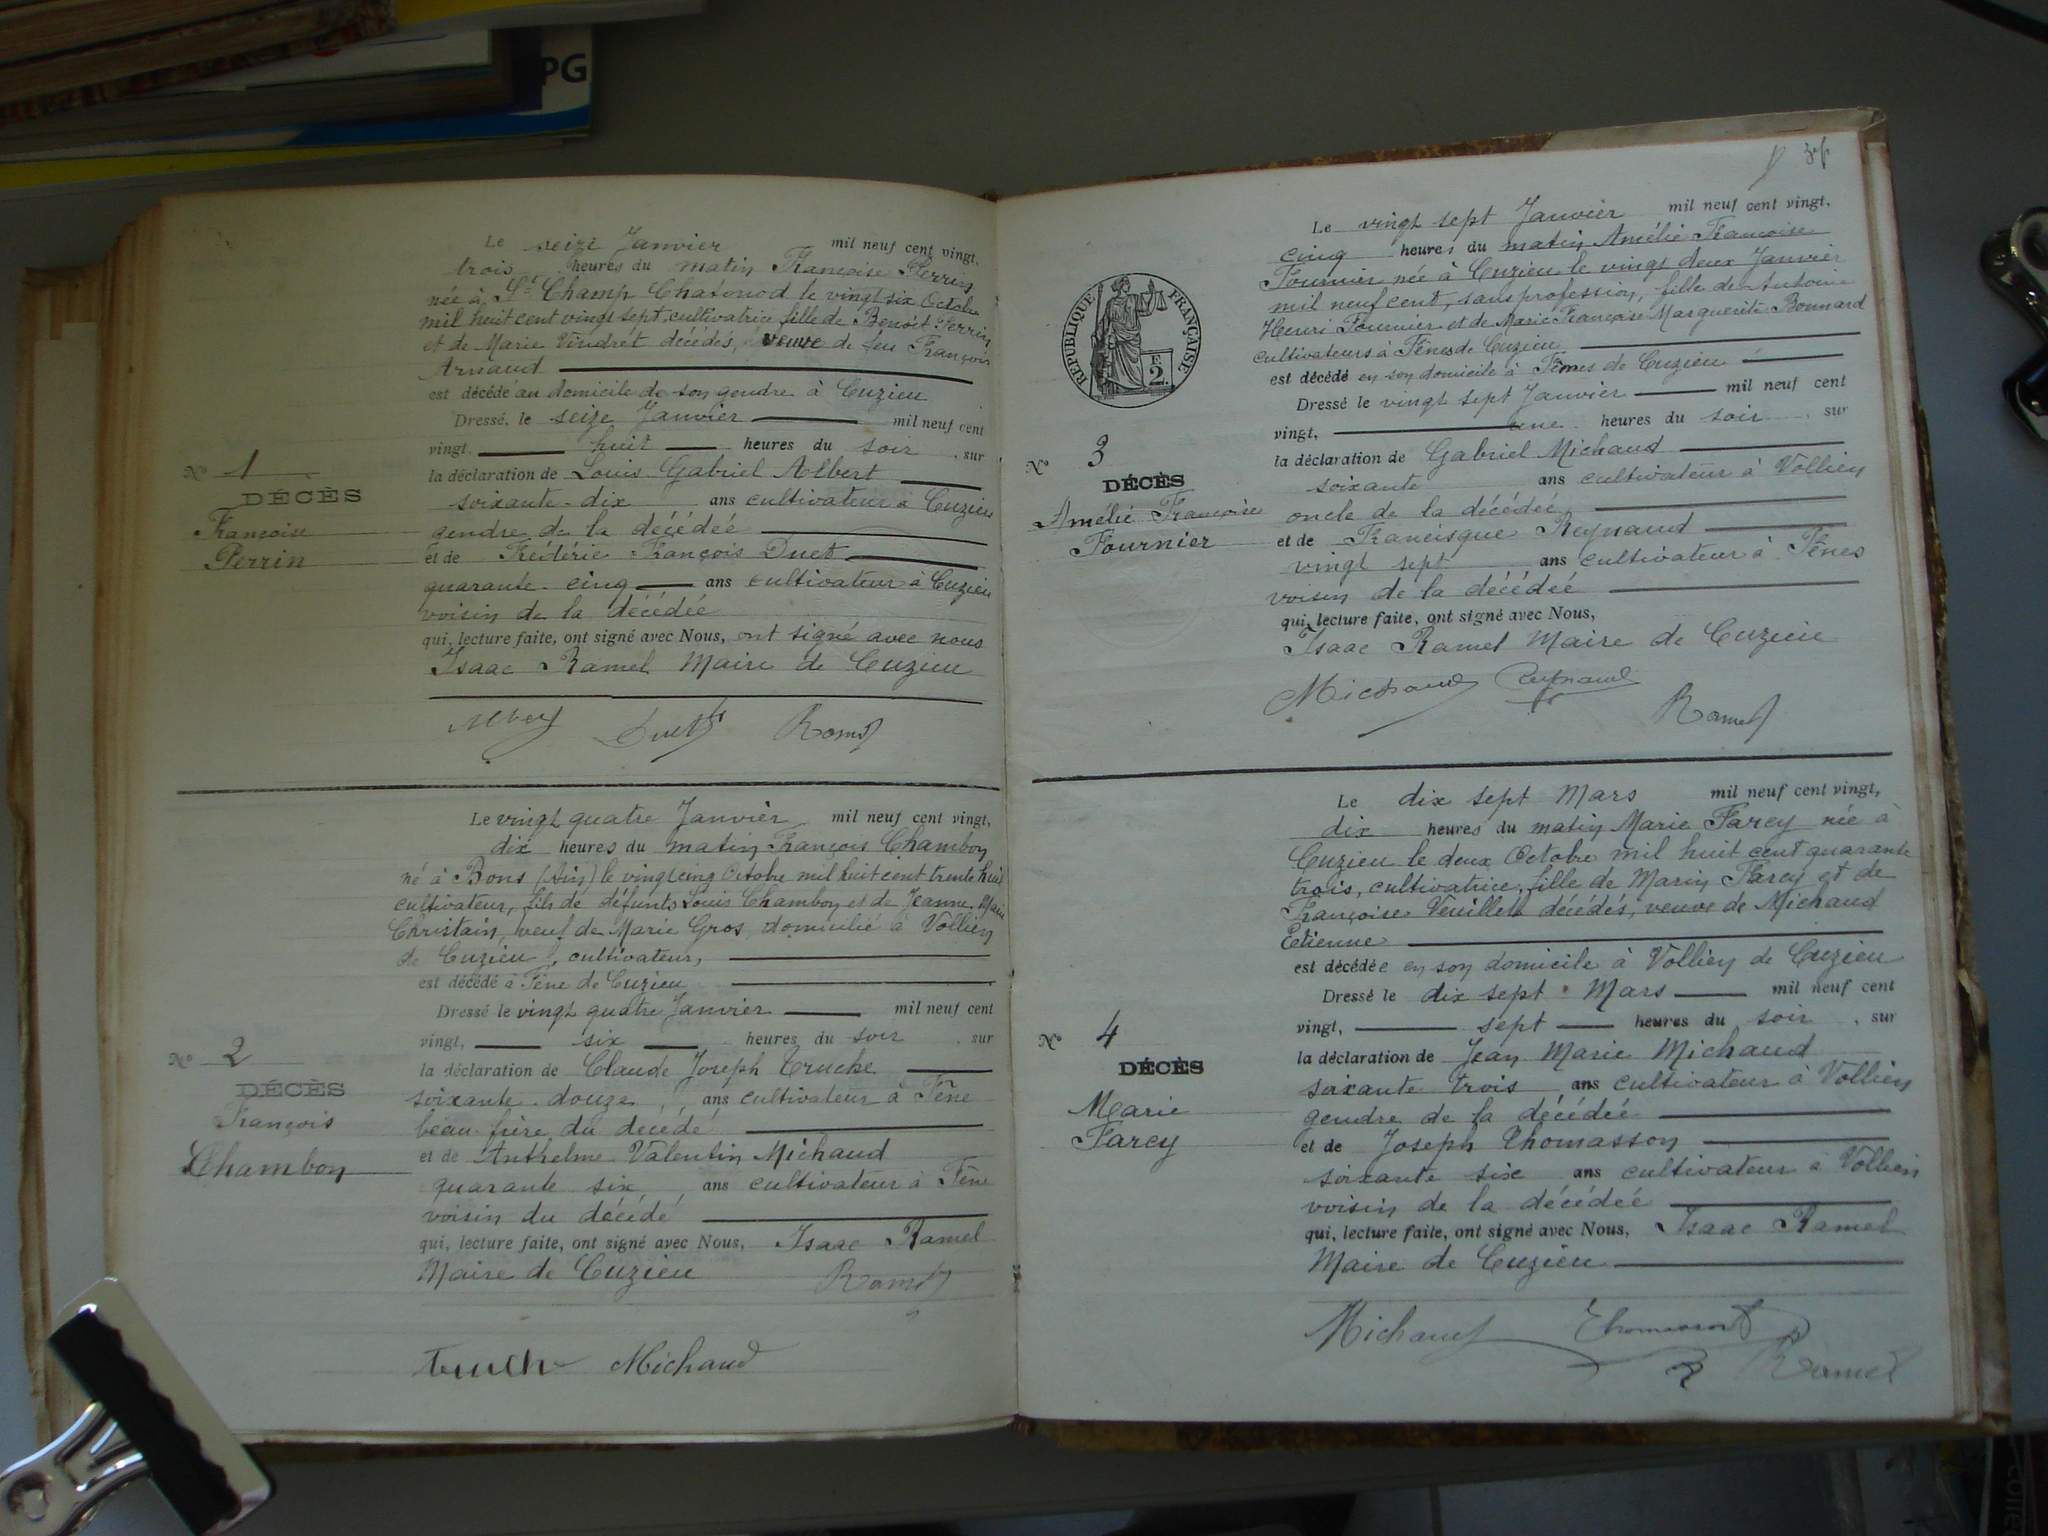 PG
Le seize Janvier mil neuf cent vingt,
trois heures du matin Françoise Perrin
née à St Champ Chatonod le vingt six Octobre
mil huit cent vingt sept, cultivatrice fille de Benoit Perrin
et de Marie Vindrét décédés, veuve de feu François
Arnaud
est décédé au domicile de son gendre à Cuzieu
Dressé, le seize Janvier mil neuf cent
vingt, huit heures du soir, sur
la déclaration de Louis Gabriel Albert
soixante-dix ans cultivateur à Cuzieu
gendre de la décédeé
et de Frédéric François Duet
quarante-cinq ans cultivateur à Cuzieu
voisin de la décédeé
qui, lecture faite, ont signé avec Nous, ont signé avec nous
Isaac Ramel Maire de Cuzieu
Duet Ramel
N° 1
DÉCÈS
Françoise
Perrin
Le vingt quatre Janvier mil neuf cent vingt,
dix heures du matin François Chambon
né à Bons (Ain) le vingt cinq Octobre mil huit cent trente huit
cultivateur, fils de défunts Louis Chambon et de Jeanne Marie
Christain, veuf de Marie Gros, domicilié à Vollien
de Cuzieu, cultivateur,
est décédé à Fène de Cuzieu
Dressé le vingt quatre Janvier mil neuf cent
vingt, six heures du soir, sur
la déclaration de Claude Joseph Truche
soixante-douze ans cultivateur à Fène
beau-frère du décédé
et de Anthelme Valentin Michaud
quarante six ans cultivateur à Fène
voisin du décédé
qui, lecture faite, ont signé avec Nous, Isaac Ramel
Maire de Cuzieu Ramel
Truche Michaud
N° 2
DÉCÈS
François
Chambon
Le vingt sept Janvier mil neuf cent vingt,
cinq heures du matin Amélie Françoise
Fournier née à Cuzieu le vingt deux Janvier
mil neuf cent, sans profession, fille de Antoine
Henri Fournier et de Marie Françoise Marguerite Bonnard
cultivateurs à Fènes de Cuzieu
est décédé en son domicile à Fènes de Cuzieu
Dressé le vingt sept Janvier mil neuf cent
vingt, une heures du soir, sur
la déclaration de Gabriel Michaud
soixante ans cultivateur à Vollien
oncle de la décédeé
et de Francisque Reynaud
vingt sept ans cultivateur à Fènes
voisin de la décédeé
qui, lecture faite, ont signé avec Nous,
Isaac Ramel Maire de Cuzieu
Michaud Reynaud
Ramel
RÉPUBLIQUE FRANÇAISE
2 F.
N° 3
DÉCÈS
Amélie Françoise
Fournier
Le dix sept Mars mil neuf cent vingt,
dix heures du matin Marie Farcy née à
Cuzieu le deux Octobre mil huit cent quarante
trois, cultivatrice, fille de Marin Farcy et de
Françoise Veuillet décédés, veuve de Michaud
Etienne
est décédée en son domicile à Vollien de Cuzieu
Dressé le dix sept Mars mil neuf cent
vingt, sept heures du soir, sur
la déclaration de Jean Marie Michaud
soixante trois ans cultivateur à Vollien
gendre de la décédeé
et de Joseph Thomasson
soixante six ans cultivateur à Vollien
voisin de la décédeé
qui, lecture faite, ont signé avec Nous, Isaac Ramel
Maire de Cuzieu
Michaud Thomasson
Ramel
N° 4
DÉCÈS
Marie
Farcy